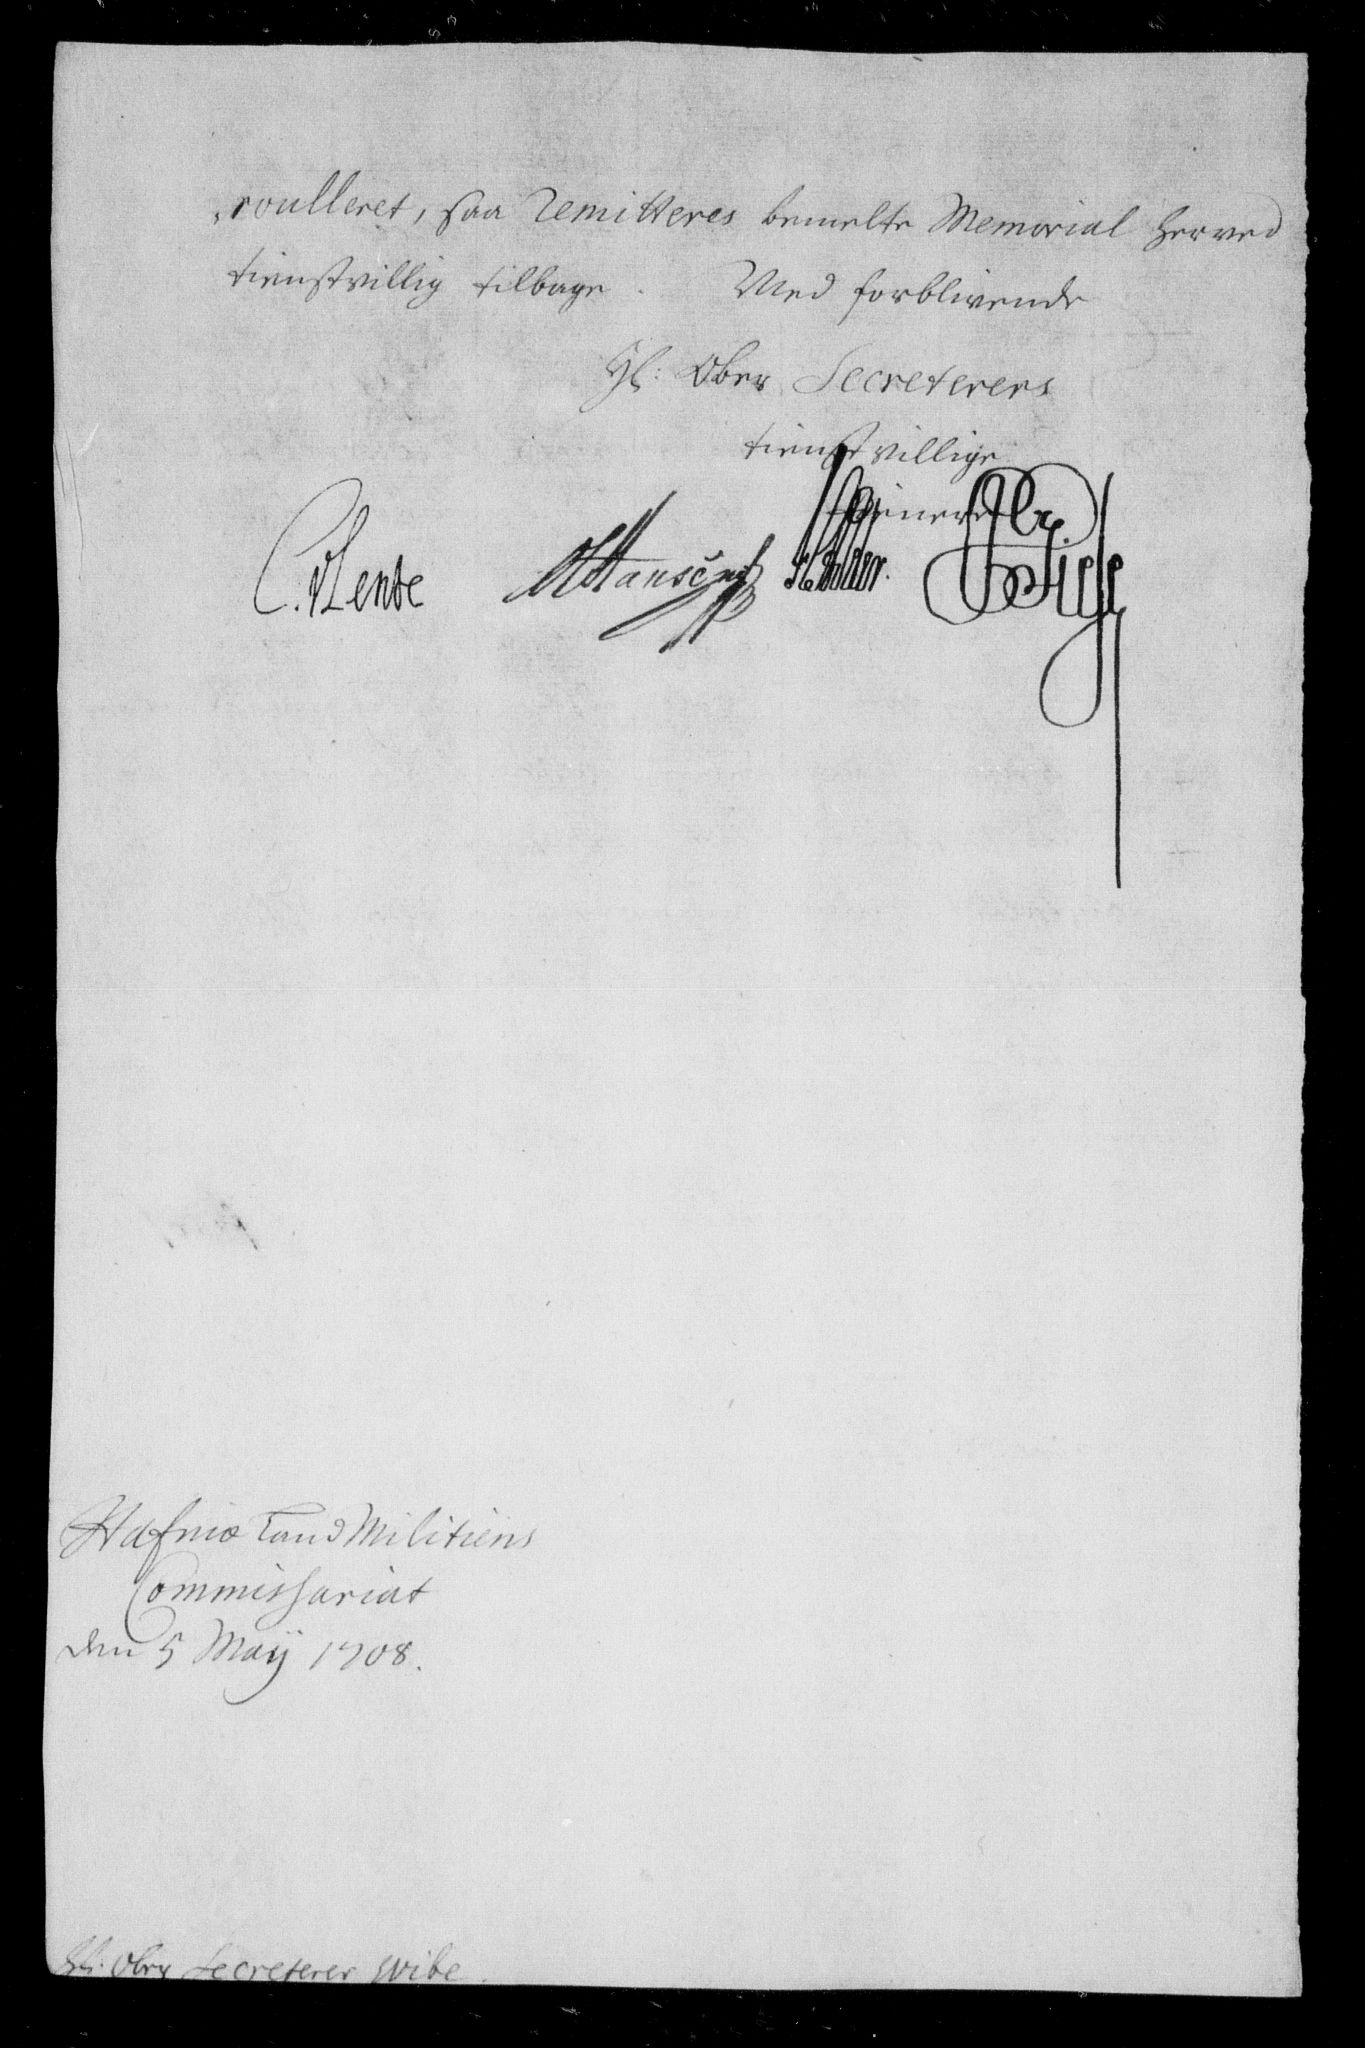 roulleret, saa Remitteres bemelte Memorial herved
tienstvillig tilbage. Med forblivende
Hl: Ober Secreterers
tienstvillige
tienere
C. v Lente
Den 5 Maÿ 1708.
Hafniæ Land Militiens
Commissariat
den 5 Maÿ 1708.
Hl: Ober Secreterer Wibe.